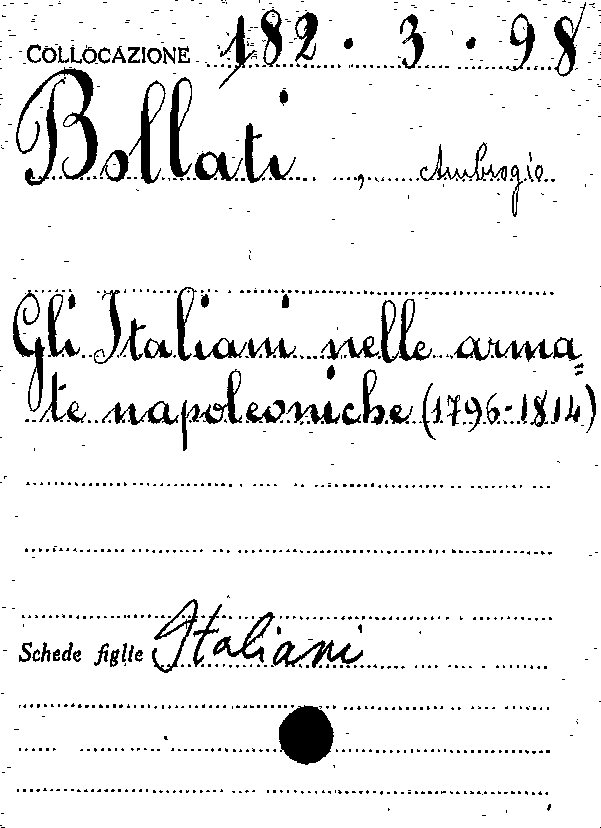 COLLOCAZIONE 182 . 3 . 98
Bollati , Ambrogio
Gli Italiani nelle arma=
te napoleoniche (1796-1814)
Schede figlie Italiani